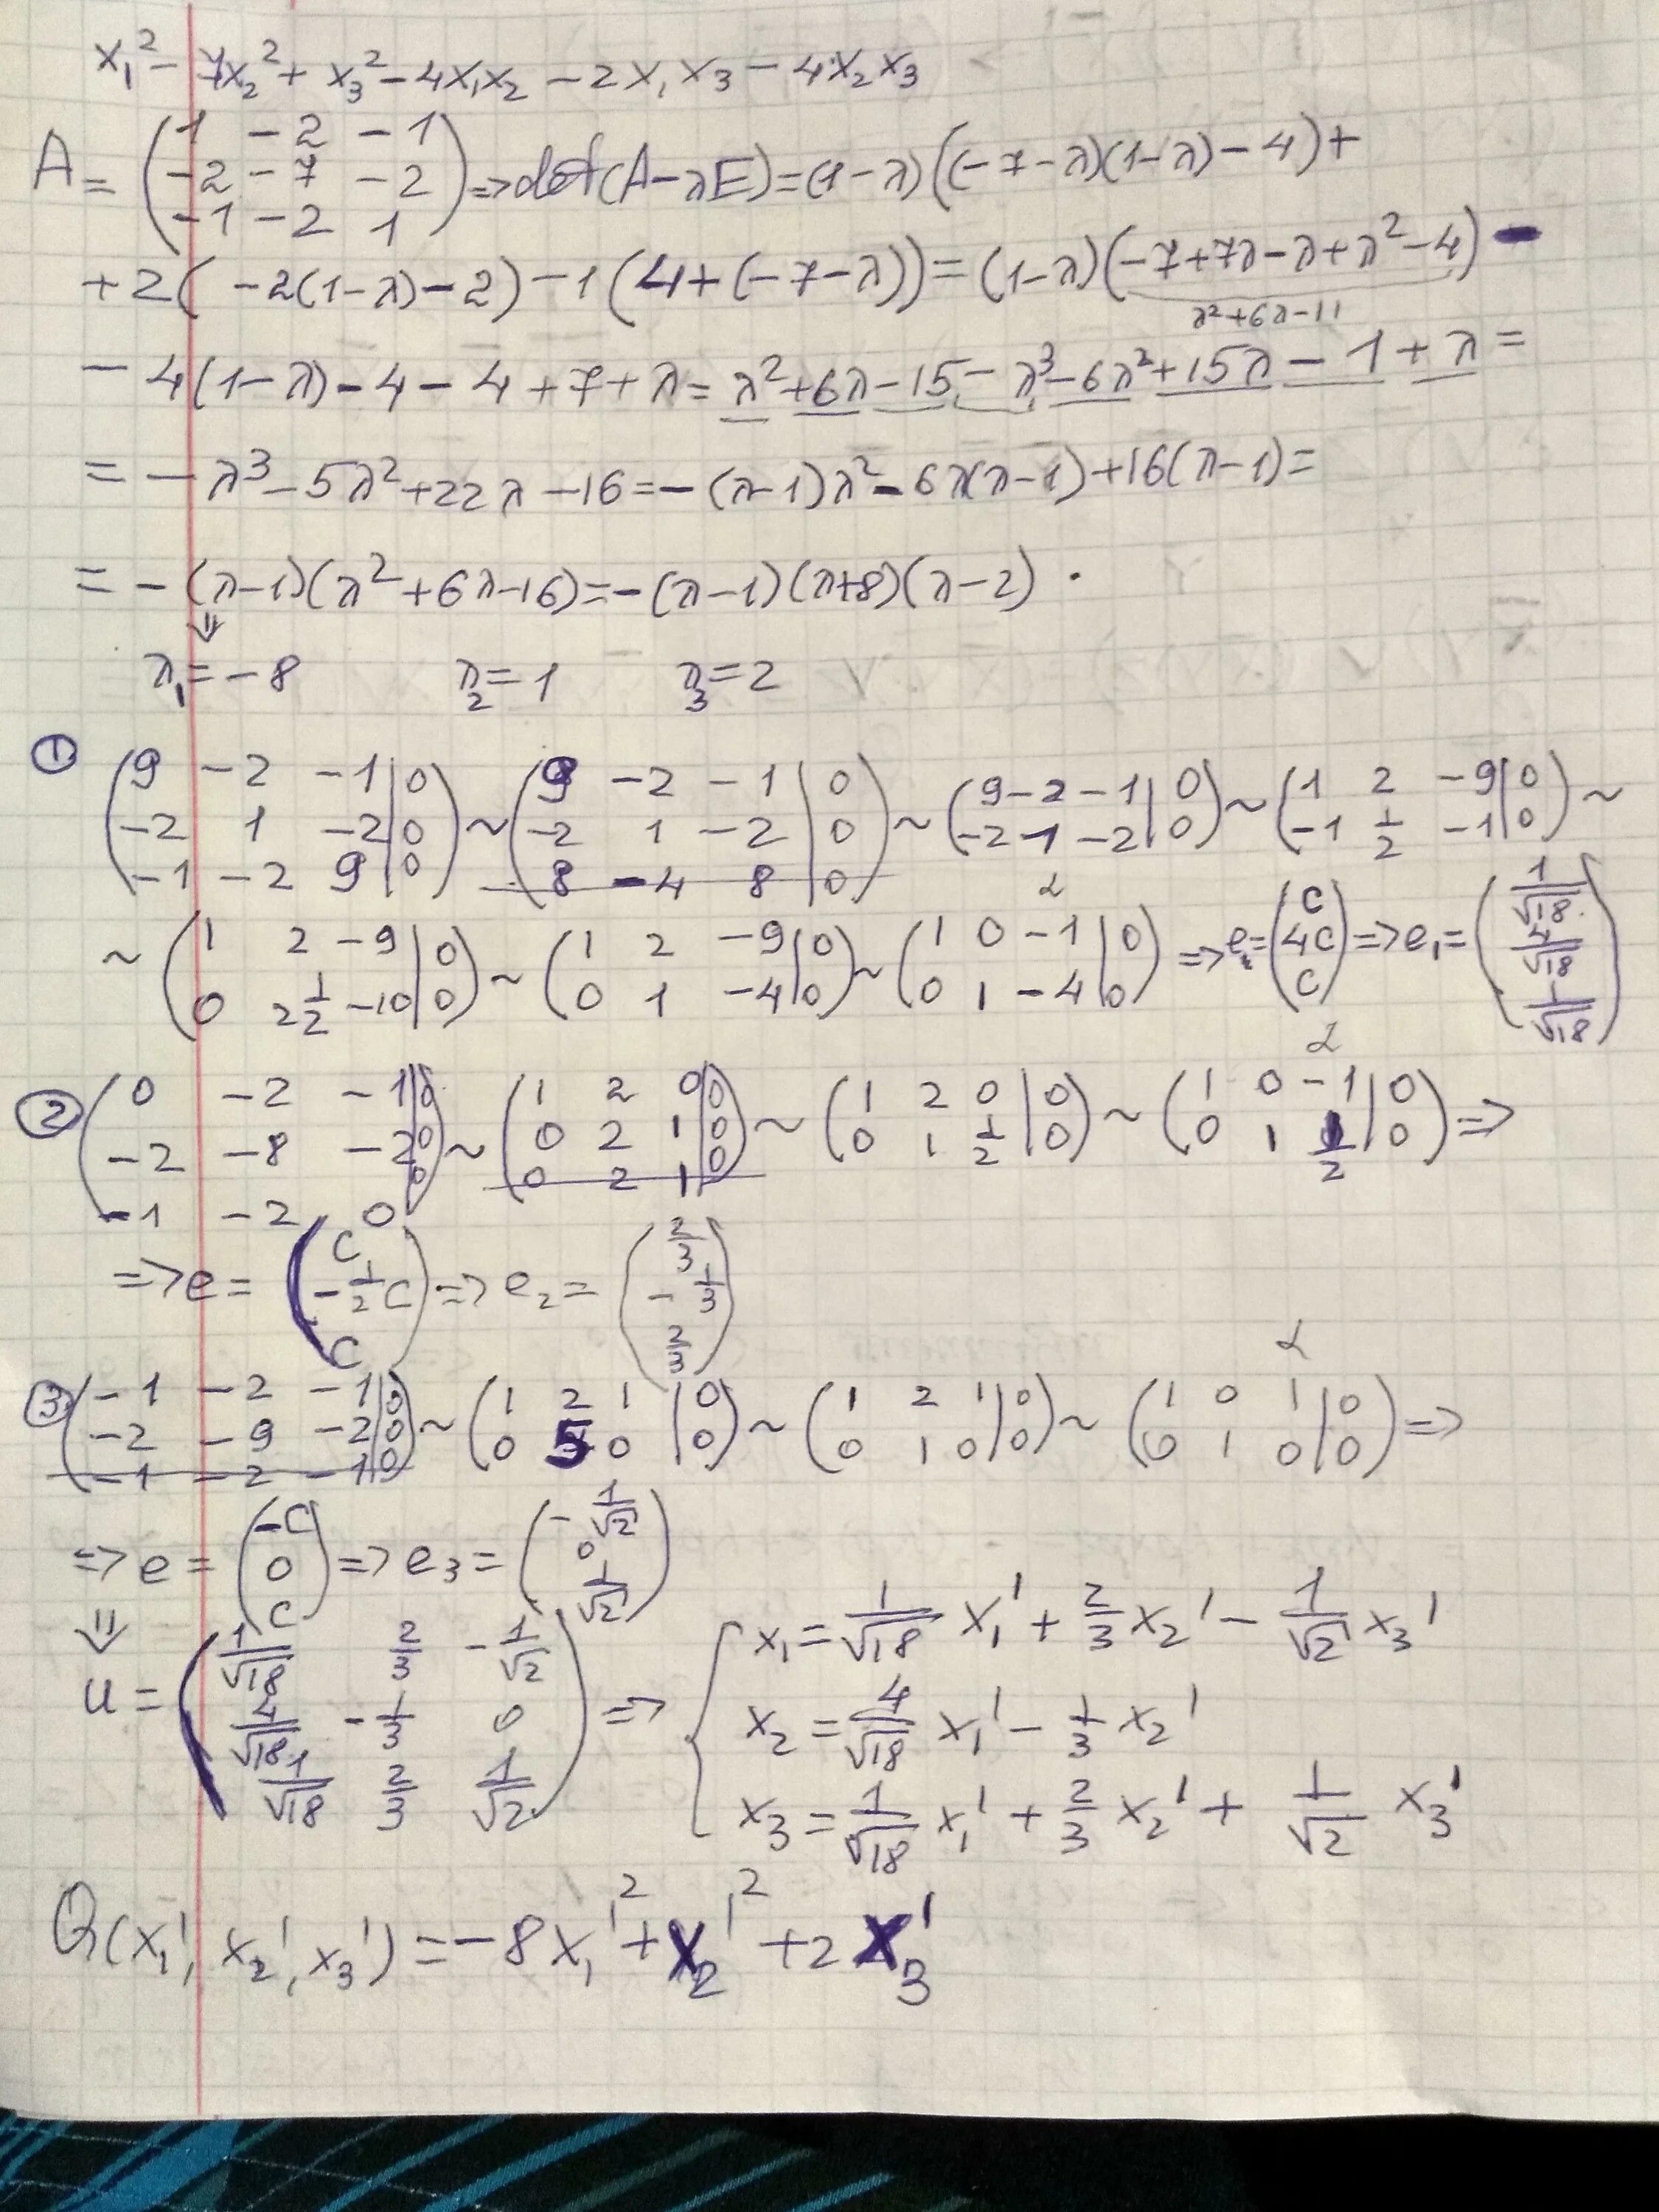 x₁² - 7x₂² + x₃² - 4x₁x₂ - 2x₁x₃ - 4x₂x₃
A = (1 -2 -1; -2 -7 -2; -1 -2 1) => det(A-λE) = (1-λ)((-7-λ)(1-λ)-4)+
+2(-2(1-λ)-2)-1(4+(-7-λ)) = (1-λ)(-7+7λ-λ+λ²-4) -
λ²+6λ-11
- 4(1-λ)-4-4+7+λ = λ²+6λ-15-λ³-6λ²+15λ-1+λ =
= -λ³-5λ²+22λ-16 = -(λ-1)λ²-6λ(λ-1)+16(λ-1) =
= -(λ-1)(λ²+6λ-16) = -(λ-1)(λ+8)(λ-2).
⇓
λ₁ = -8 λ₂ = 1 λ₃ = 2
① (9 -2 -1|0; -2 1 -2|0; -1 -2 9|0) ~ (9 -2 -1|0; -2 1 -2|0; 8 -4 8|0) ~ (9 -2 -1|0; -2 1 -2|0) ~ (1 2 -9|0; -1 1/2 -1|0) ~
~ (1 2 -9|0; 0 2 1/2 -10|0) ~ (1 2 -9|0; 0 1 -4|0) ~ (1 0 -1|0; 0 1 -4|0) => e = (c; 4c; c) => e₁ = (1/√18; 4/√18; 1/√18)
② (0 -2 -1|0; -2 -8 -2|0; -1 -2 0|0) ~ (1 2 0|0; 0 2 1|0; 0 2 1|0) ~ (1 2 0|0; 0 1 1/2|0) ~ (1 0 -1|0; 0 1 1/2|0) =>
=> e = (c; -1/2c; c) => e₂ = (2/3; -1/3; 2/3)
③ (-1 -2 -1|0; -2 -9 -2|0; -1 -2 -1|0) ~ (1 2 1|0; 0 5 0|0) ~ (1 2 1|0; 0 1 0|0) ~ (1 0 1|0; 0 1 0|0) =>
=> e = (-c; 0; c) => e₃ = (-1/√2; 0; 1/√2)
⇓
U = (1/√18 2/3 -1/√2; 4/√18 -1/3 0; 1/√18 2/3 1/√2) => { x₁ = 1/√18 x₁' + 2/3 x₂' - 1/√2 x₃'
x₂ = 4/√18 x₁' - 1/3 x₂'
x₃ = 1/√18 x₁' + 2/3 x₂' + 1/√2 x₃'
Q(x₁', x₂', x₃') = -8x₁'² + x₂'² + 2x₃'